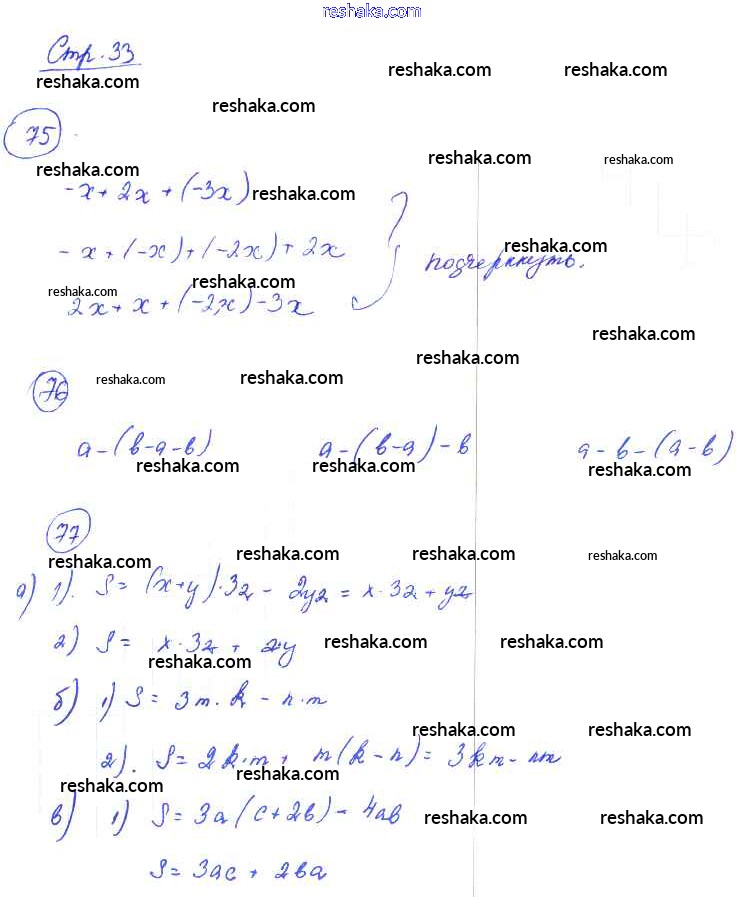 reshaka.com
Стр. 33
reshaka.com reshaka.com reshaka.com
reshaka.com
75
reshaka.com reshaka.com reshaka.com
-x + 2x + (-3x) reshaka.com
-x + (-x) + (-2x) + 2x reshaka.com
подчеркнуть.
reshaka.com reshaka.com
2x + x + (-2x) - 3x
reshaka.com
reshaka.com
76 reshaka.com reshaka.com
a - (b - a - b) a - (b - a) - b a - b - (a - b)
reshaka.com reshaka.com reshaka.com
77
reshaka.com reshaka.com reshaka.com reshaka.com
а) 1). S = (x+y)·3z - 2yz = x·3z + yz
2) S = x·3z + z·y reshaka.com reshaka.com
reshaka.com
б) 1) S = 3m·k - n·m
reshaka.com reshaka.com
2). S = 2k·m + m(k-n) = 3km - nm
reshaka.com reshaka.com
в) 1) S = 3a(c+2b) - 4ab reshaka.com reshaka.com
S = 3ac + 2ba